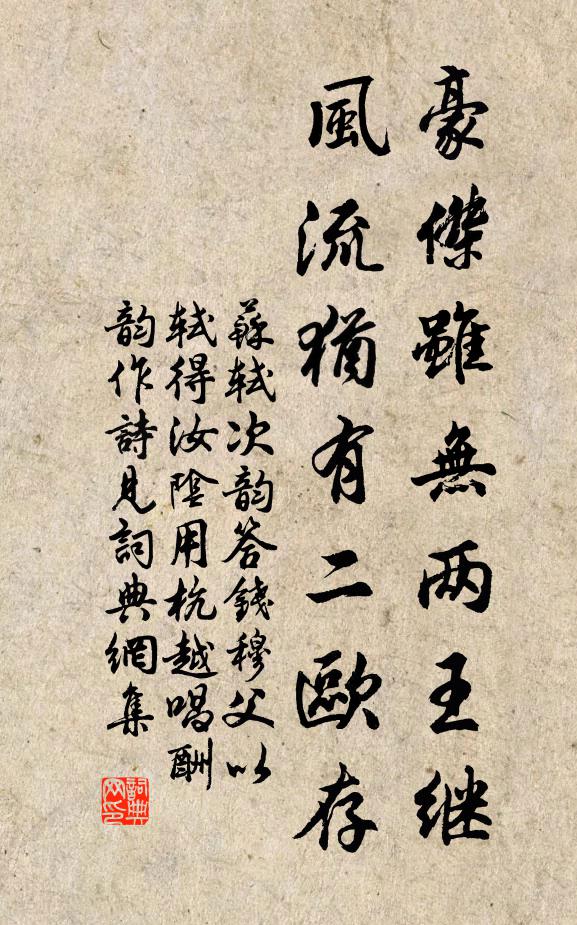 豪傑雖無两王継
風流猶有二歐存
蘇軾次韵答錢穆父以
軾得汝陰用杭越唱酬
韵作詩見詞典網集
詞典网印